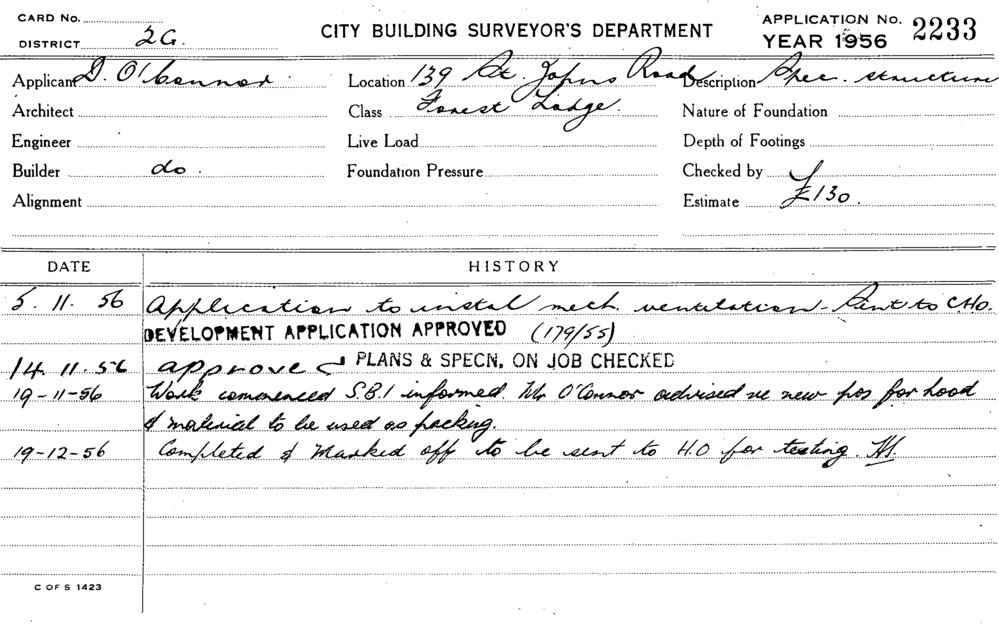 CARD No.
DISTRICT 2G.
CITY BUILDING SURVEYOR'S DEPARTMENT
APPLICATION No. 2233
YEAR 1956
Applicant D. O'Connor Location 139 St. Johns Road Description Spec. structure
Architect Class Forest Lodge. Nature of Foundation
Engineer Live Load Depth of Footings
Builder do. Foundation Pressure Checked by
Alignment Estimate £130.
DATE HISTORY
5. 11. 56 Application to instal mech. ventilation. Sent to C.H.O.
DEVELOPMENT APPLICATION APPROVED (179/55)
14. 11. 56 approved PLANS & SPECN. ON JOB CHECKED
19-11-56 Work commenced S.B.I informed Mr O'Connor advised re new pos for hood
& material to be used as packing.
19-12-56 Completed & Marked off to be sent to H.O for testing.
C OF S 1423